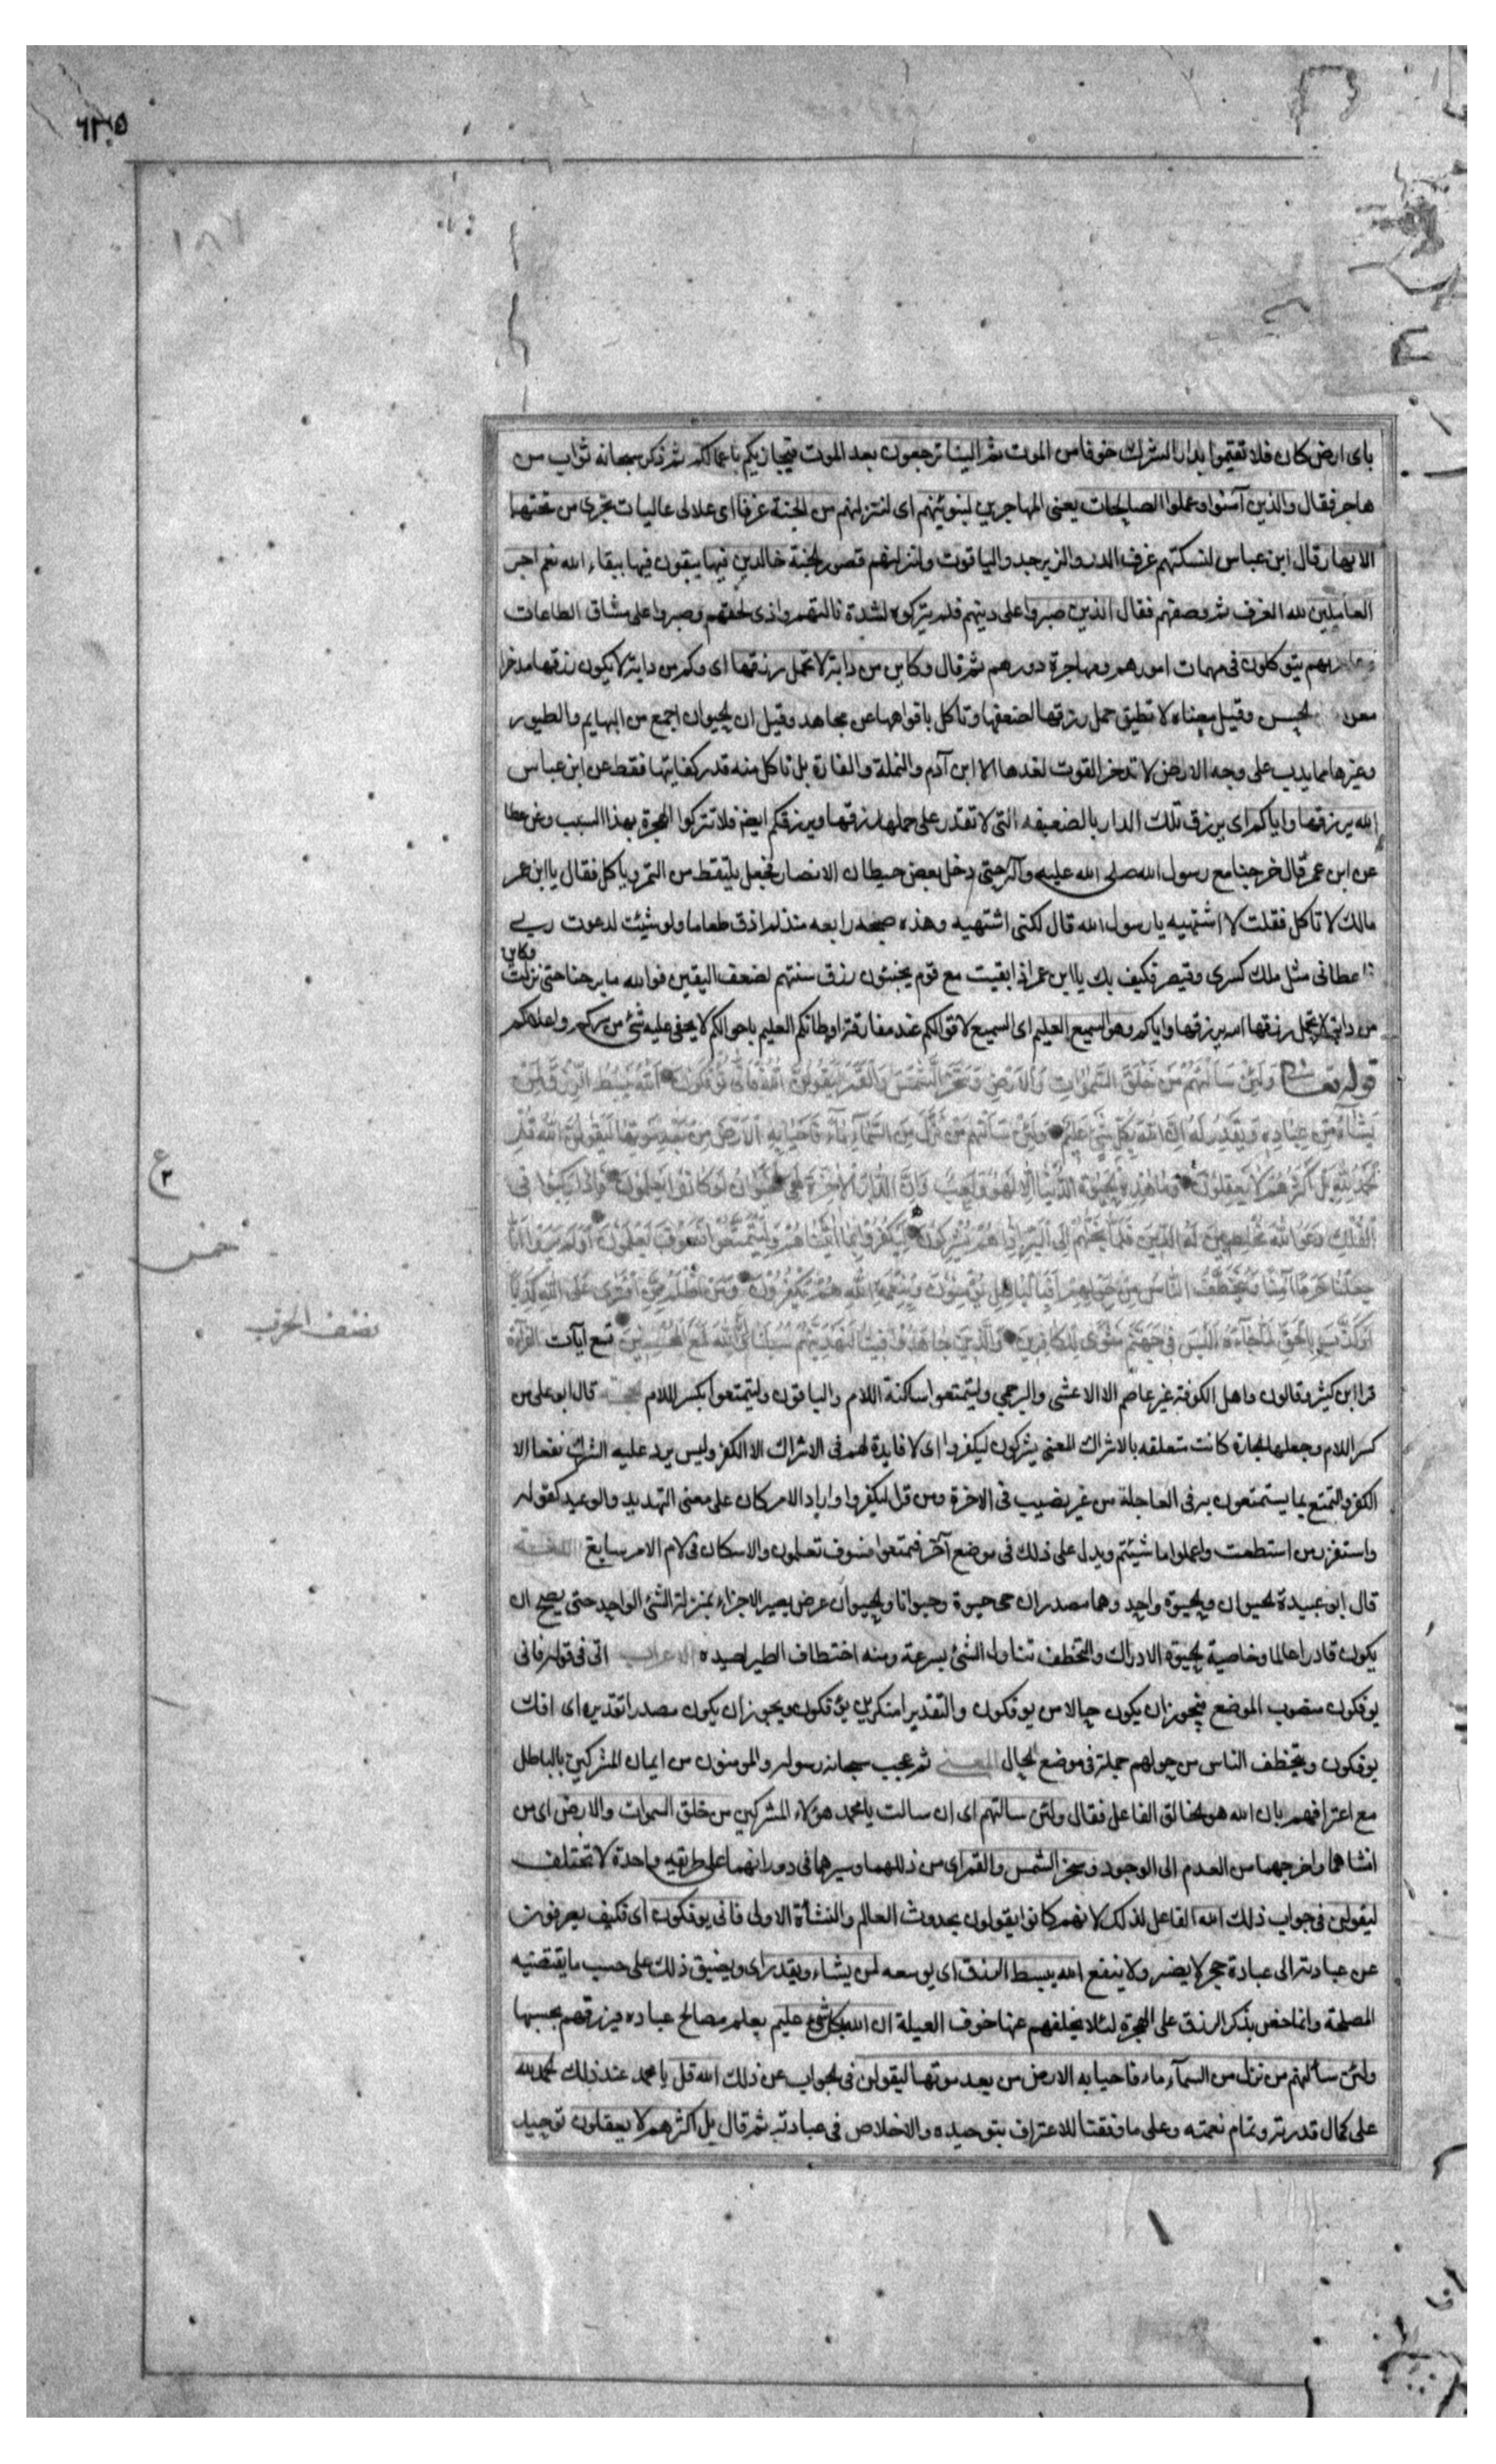 ٦٢٠٥
بای ارض کان فلا تقیموا بدار الشرک خوفا من الموت ثم الینا ترجعون بعد الموت فیجازیکم باعمالکم ثم ذکر سبحانه ثواب من
هاجر فقال والذین آمنوا وعملوا الصالحات یعنی المهاجرین لنبوئنهم ای لننزلنهم من الجنة غرفا ای علالی عالیات تجری من تحتها
الانهار قال ابن عباس لنسکنهم غرف الدر والزبرجد والیاقوت ولننزلنهم قصور الجنة خالدین فیها یبقون فیها ببقاء الله نعم اجر
العاملین لله الغرف ثم وصفهم فقال الذین صبروا علی دینهم فلم یترکوه لشدة نالتهم واذی لحقهم وصبروا علی مشاق الطاعات
وعلی ربهم یتوکلون فی مهمات امورهم ومهاجرة دورهم ثم قال وکاین من دابة لا تحمل رزقها ای وکم من دابة لا یکون رزقها مدخرا
معدا الحسن وقیل معناه لا تطیق حمل رزقها لضعفها وتاکل بافواهها عن مجاهد وقیل ان الحیوان اجمع من البهایم والطیور
وغیرها مما یدب علی وجه الارض لا تدخر القوت لغدها الا ابن آدم والنملة والفارة بل تاکل منه قدر کفایتها فقط عن ابن عباس
الله یرزقها وایاکم ای یرزق تلک الدابة الضعیفه التی لا تقدر علی حمل رزقها ویرزقکم ایضا فلا تترکوا الهجرة بهذا السبب وعن عطا
عن ابن عمر قال خرجنا مع رسول الله صلی الله علیه وآله حتی دخل بعض حیطان الانصار فجعل یلتقط من التمر ویاکل فقال یا ابن عمر
مالک لا تاکل فقلت لا اشتهیه یا رسول الله قال لکنی اشتهیه وهذه صبحه رابعه منذ لم اذق طعاما ولو شئت لدعوت ربی
فاعطانی مثل ملک کسری وقیصر فکیف بک یا ابن عمر اذا بقیت مع قوم یخبئون رزق سنتهم لضعف الیقین فوالله ما برحنا حتی نزلت وکاین
من دابة لا تحمل رزقها الله یرزقها وایاکم وهو السمیع العلیم ای السمیع لاقوالکم عند مفارقة اوطانکم العلیم باحوالکم لا یخفی علیه شئ من سرکم واعلانکم
قوله تعالی وَلَئِنْ سَأَلْتَهُمْ مَنْ خَلَقَ السَّمٰوَاتِ وَالْاَرْضَ وَسَخَّرَ الشَّمْسَ وَالْقَمَرَ لَيَقُولُنَّ اللّٰهُ فَاَنّٰى يُؤْفَكُونَ اَللّٰهُ يَبْسُطُ الرِّزْقَ لِمَنْ
يَشَآءُ مِنْ عِبَادِهِ وَيَقْدِرُ لَهُ اِنَّ اللّٰهَ بِكُلِّ شَيْءٍ عَلِيمٌ وَلَئِنْ سَأَلْتَهُمْ مَنْ نَزَّلَ مِنَ السَّمَآءِ مَآءً فَاَحْيَا بِهِ الْاَرْضَ مِنْ بَعْدِ مَوْتِهَا لَيَقُولُنَّ اللّٰهُ قُلِ
الْحَمْدُ لِلّٰهِ بَلْ اَكْثَرُهُمْ لَا يَعْقِلُونَ وَمَا هٰذِهِ الْحَيٰوةُ الدُّنْيَا اِلَّا لَهْوٌ وَلَعِبٌ وَاِنَّ الدَّارَ الْاٰخِرَةَ لَهِيَ الْحَيَوَانُ لَوْ كَانُوا يَعْلَمُونَ فَاِذَا رَكِبُوا فِي
الْفُلْكِ دَعَوُا اللّٰهَ مُخْلِصِينَ لَهُ الدِّينَ فَلَمَّا نَجّٰهُمْ اِلَى الْبَرِّ اِذَا هُمْ يُشْرِكُونَ لِيَكْفُرُوا بِمَا اٰتَيْنَاهُمْ وَلِيَتَمَتَّعُوا فَسَوْفَ يَعْلَمُونَ اَوَلَمْ يَرَوْا اَنَّا
جَعَلْنَا حَرَمًا اٰمِنًا وَيُتَخَطَّفُ النَّاسُ مِنْ حَوْلِهِمْ اَفَبِالْبَاطِلِ يُؤْمِنُونَ وَبِنِعْمَةِ اللّٰهِ هُمْ يَكْفُرُونَ وَمَنْ اَظْلَمُ مِمَّنِ افْتَرٰى عَلَى اللّٰهِ كَذِبًا
اَوْ كَذَّبَ بِالْحَقِّ لَمَّا جَآءَهُ اَلَيْسَ فِي جَهَنَّمَ مَثْوًى لِلْكَافِرِينَ وَالَّذِينَ جَاهَدُوا فِينَا لَنَهْدِيَنَّهُمْ سُبُلَنَا وَاِنَّ اللّٰهَ لَمَعَ الْمُحْسِنِينَ تسع آیات القراءة
قرا ابن کثیر وقالون واهل الکوفة غیر عاصم الا الاعشی والبرجمی ولیتمتعوا ساکنة اللام والباقون ولیتمتعوا بکسر اللام الحجة قال ابو علی من
کسر اللام وجعلها الجارة کانت متعلقه بالاشراک المعنی یشرکون لیکفروا ای لا فایدة لهم فی الاشراک الا الکفر ولیس یرد علیه الشرک نفعا الا
الکفر والتمتع بما یستمتعون به فی العاجلة من غیر نصیب فی الاخرة ومن قرا لیکفروا واراد الامر کان علی معنی التهدید والوعید کقوله
واستفزز من استطعت واعملوا ما شئتم ویدل علی ذلک فی موضع آخر فتمتعوا فسوف تعلمون والاسکان فی لام الامر سایغ اللغة
قال ابو عبیدة الحیوان والحیوة واحد وهما مصدران حی حیوة وحیوانا والحیوان عرض یصیر الاجزاء بمنزلة الشئ الواحد حتی یصح ان
یکون قادرا عالما وخاصیة الحیوة الادراک والتخطف تناول الشئ بسرعة ومنه اختطاف الطیر لصیده الاعراب انی فی قوله فانی
یوفکون منصوب الموضع فیجوز ان یکون حالا من یوفکون والتقدیر امنکرین یؤفکون ویجوز ان یکون مصدرا تقدیره ای افک
یوفکون ویتخطف الناس من حولهم جملة فی موضع الحال المعنی ثم عجب سبحانه رسوله والمومنون من ایمان المشرکین بالباطل
مع اعترافهم بان الله هو الخالق الفاعل فقال ولئن سالتهم ای ان سالت یا محمد هؤلاء المشرکین من خلق السموات والارض ای من
انشاهما واخرجهما من العدم الی الوجود وسخر الشمس والقمر ای من ذللهما وسیرهما فی دورانهما علی طریقه واحدة لا تختلف
لیقولن فی جواب ذلک الله الفاعل لذلک لانهم کانوا یقولون بحدوث العالم والنشأة الاولی فانی یوفکون ای فکیف یصرفون
عن عبادته الی عبادة حجر لا یضر ولا ینفع الله یبسط الرزق ای یوسعه لمن یشاء ویقدر ای ویضیق ذلک علی حسب ما یقتضیه
المصلحة وانما خص بذکر الرزق علی الهجرة لئلا یخلفهم عنها خوف العیلة ان الله بکل شئ علیم یعلم مصالح عباده فیرزقهم بحسبها
ولئن سألتهم من نزل من السمآء ماء فاحیا به الارض من بعد موتها لیقولن فی الجواب عن ذلک الله قل یا محمد عند ذلک الحمد لله
علی کمال قدرته وتمام نعمته وعلی ما وفقنا للاعتراف بتوحیده والاخلاص فی عبادته ثم قال بل اکثرهم لا یعقلون توحید
ع ٢
خمس
نصف الحزب